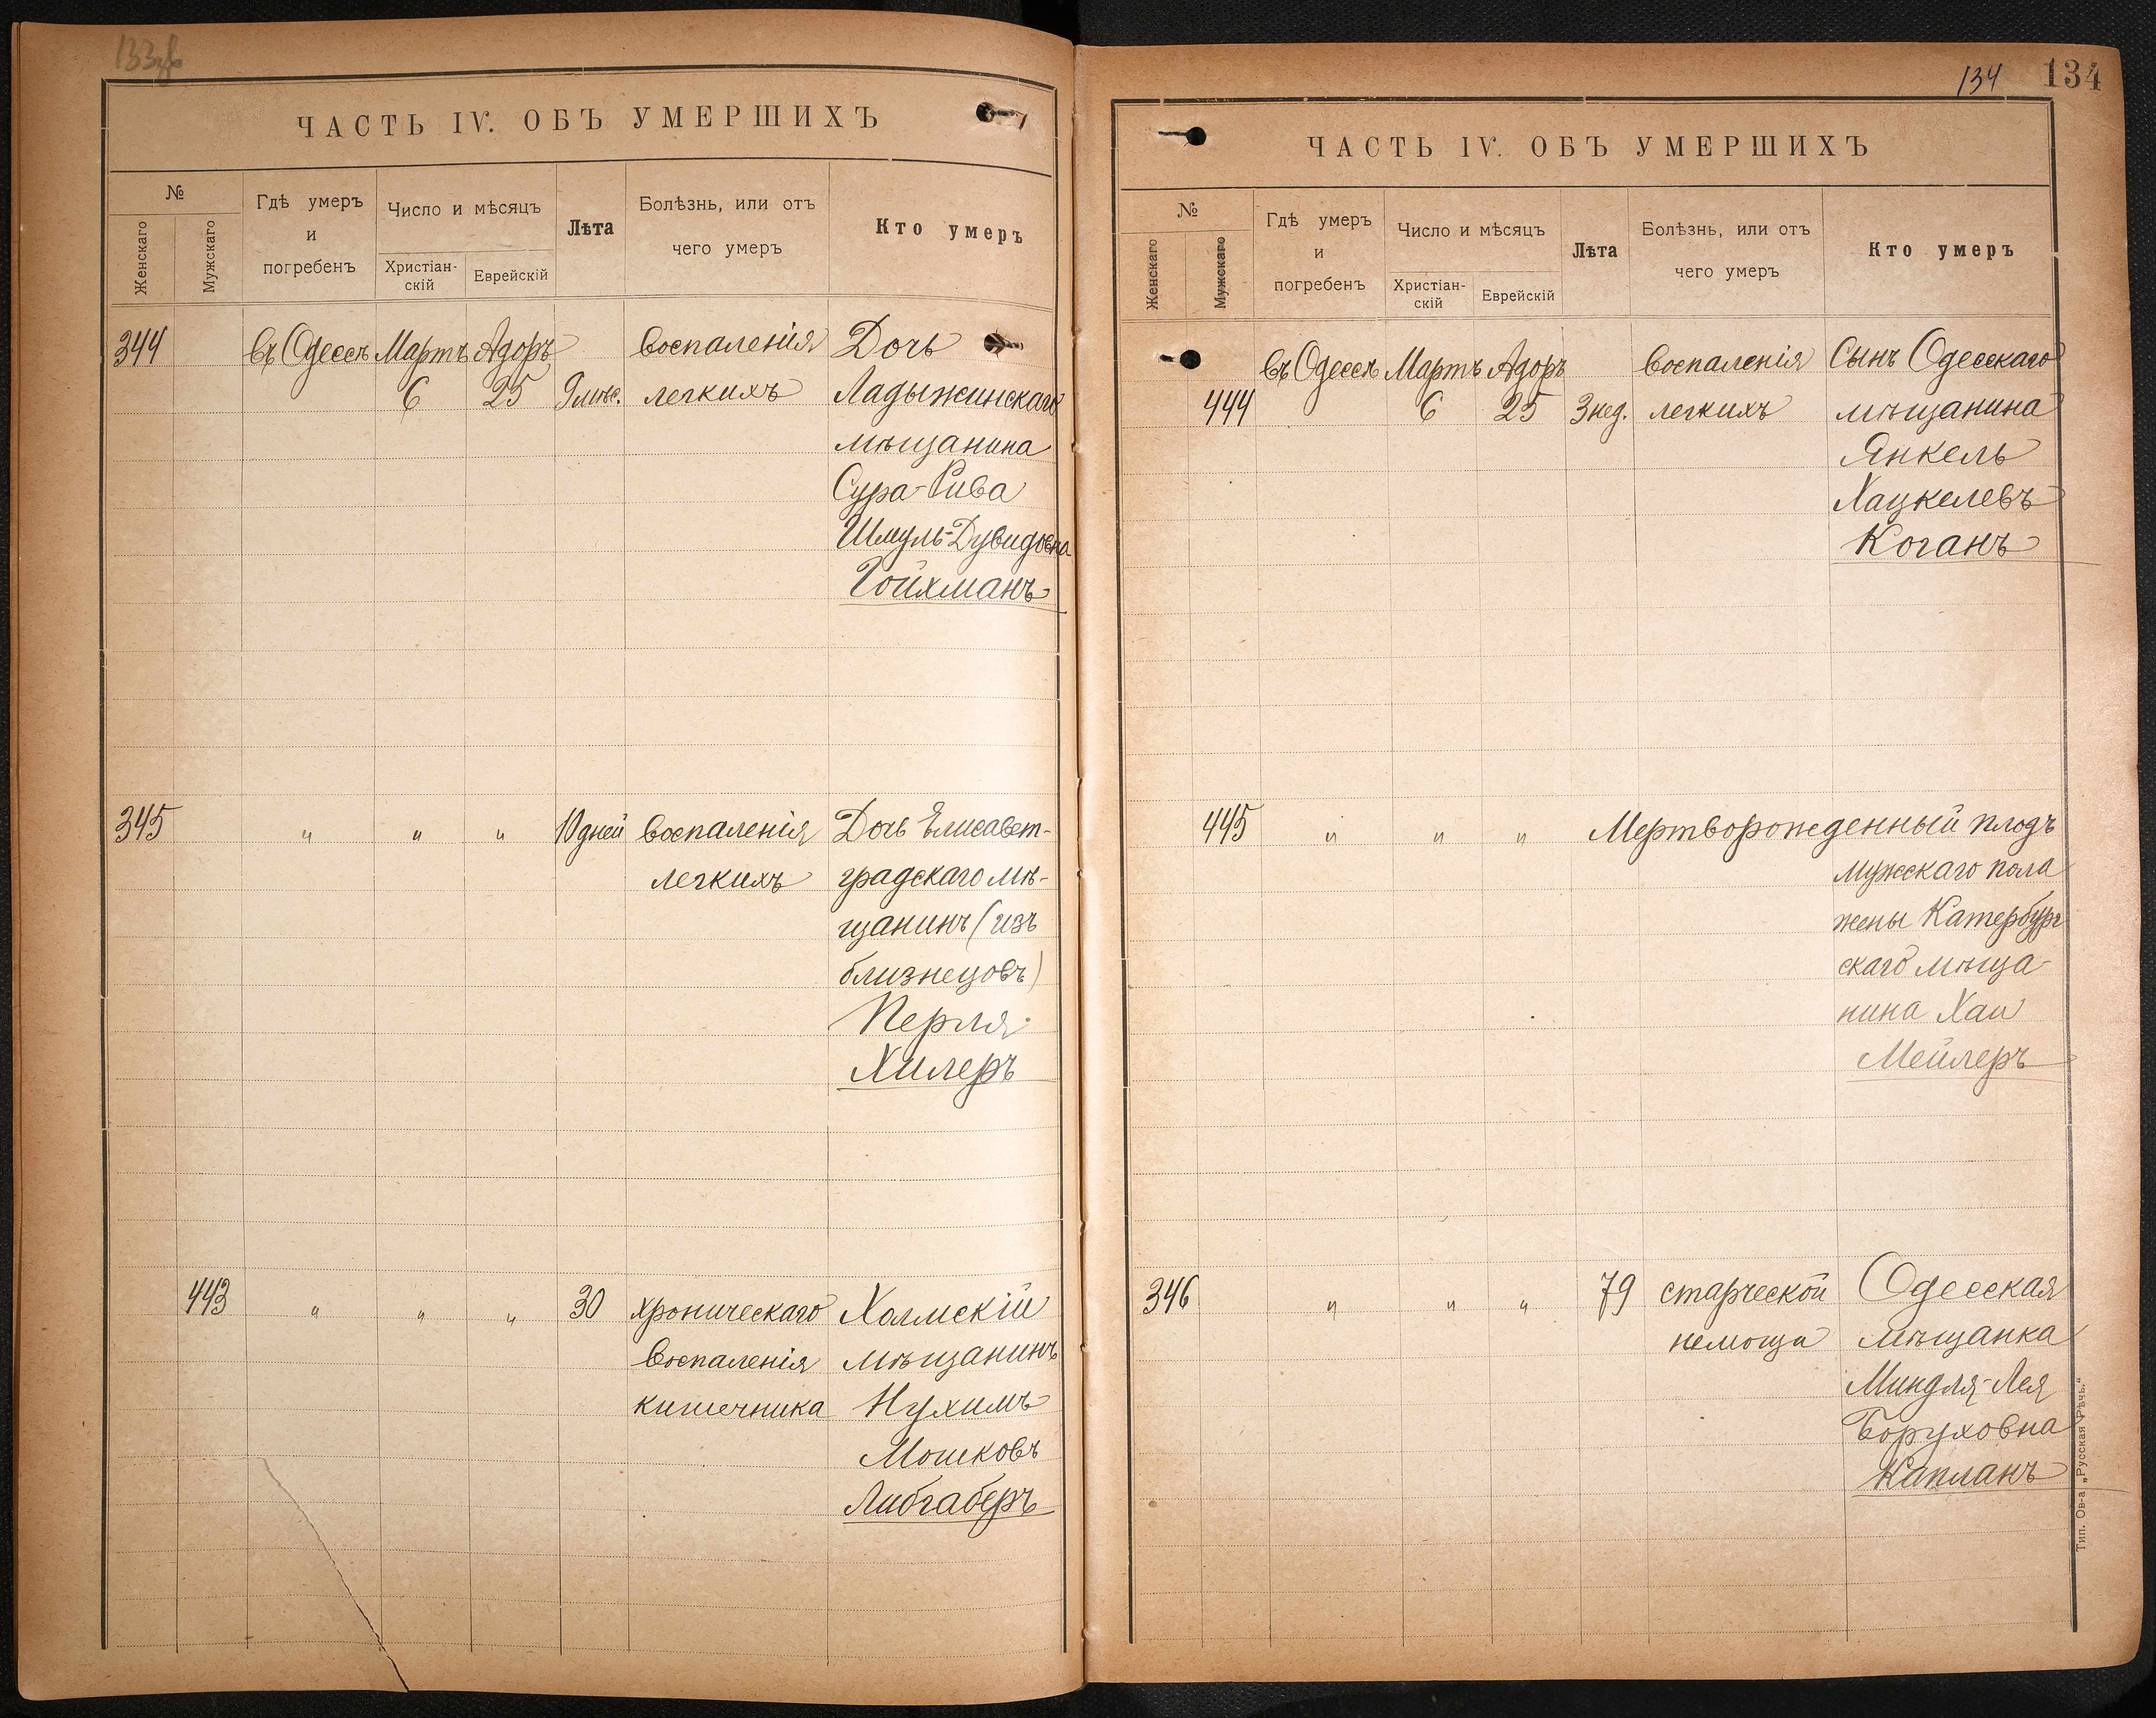 ЧАСТЬ IV. ОБЪ УМЕРШИХЪ
№
Женскаго
Мужскаго
Гдѣ умеръ
и
погребенъ
Число и мѣсяцъ
Христіан-
скій
Еврейскій
Лѣта
Болѣзнь, или отъ
чего умеръ
Кто умеръ
344 въ Одессѣ Мартъ Адоръ воспаленія Дочь
6 25 9 мѣс. легкихъ Ладыжинскаго
мѣщанина
Сура-Рива
Шмуль-Дувидовна
Гойхманъ
345 " " " 10 дней воспаленія Дочь Елисавет-
легкихъ градскаго мѣ-
щанинъ (изъ
близнецовъ)
Перля
Хилеръ
443 " " " 30 хроническаго Холмскій
воспаленія мѣщанинъ
кишечника Нухимъ
Мошковъ
Либгаберъ
134 134
ЧАСТЬ IV. ОБЪ УМЕРШИХЪ
№
Женскаго
Мужскаго
Гдѣ умеръ
и
погребенъ
Число и мѣсяцъ
Христіан-
скій
Еврейскій
Лѣта
Болѣзнь, или отъ
чего умеръ
Кто умеръ
въ Одессѣ Мартъ Адоръ воспаленія Сынъ Одесскаго
444 6 25 3 нед. легкихъ мѣщанина
Янкель
Хацкелевъ
Коганъ
445 " " " Мертворожденный плодъ
мужскаго пола
жены Катербург
скаго мѣща-
нина Хаи
Мейлеръ
346 " " " 79 старческой Одесская
немощи мѣщанка
Миндля-Лея
Боруховна
Капланъ
Тип. Ов-а „Русская Рѣчь.“